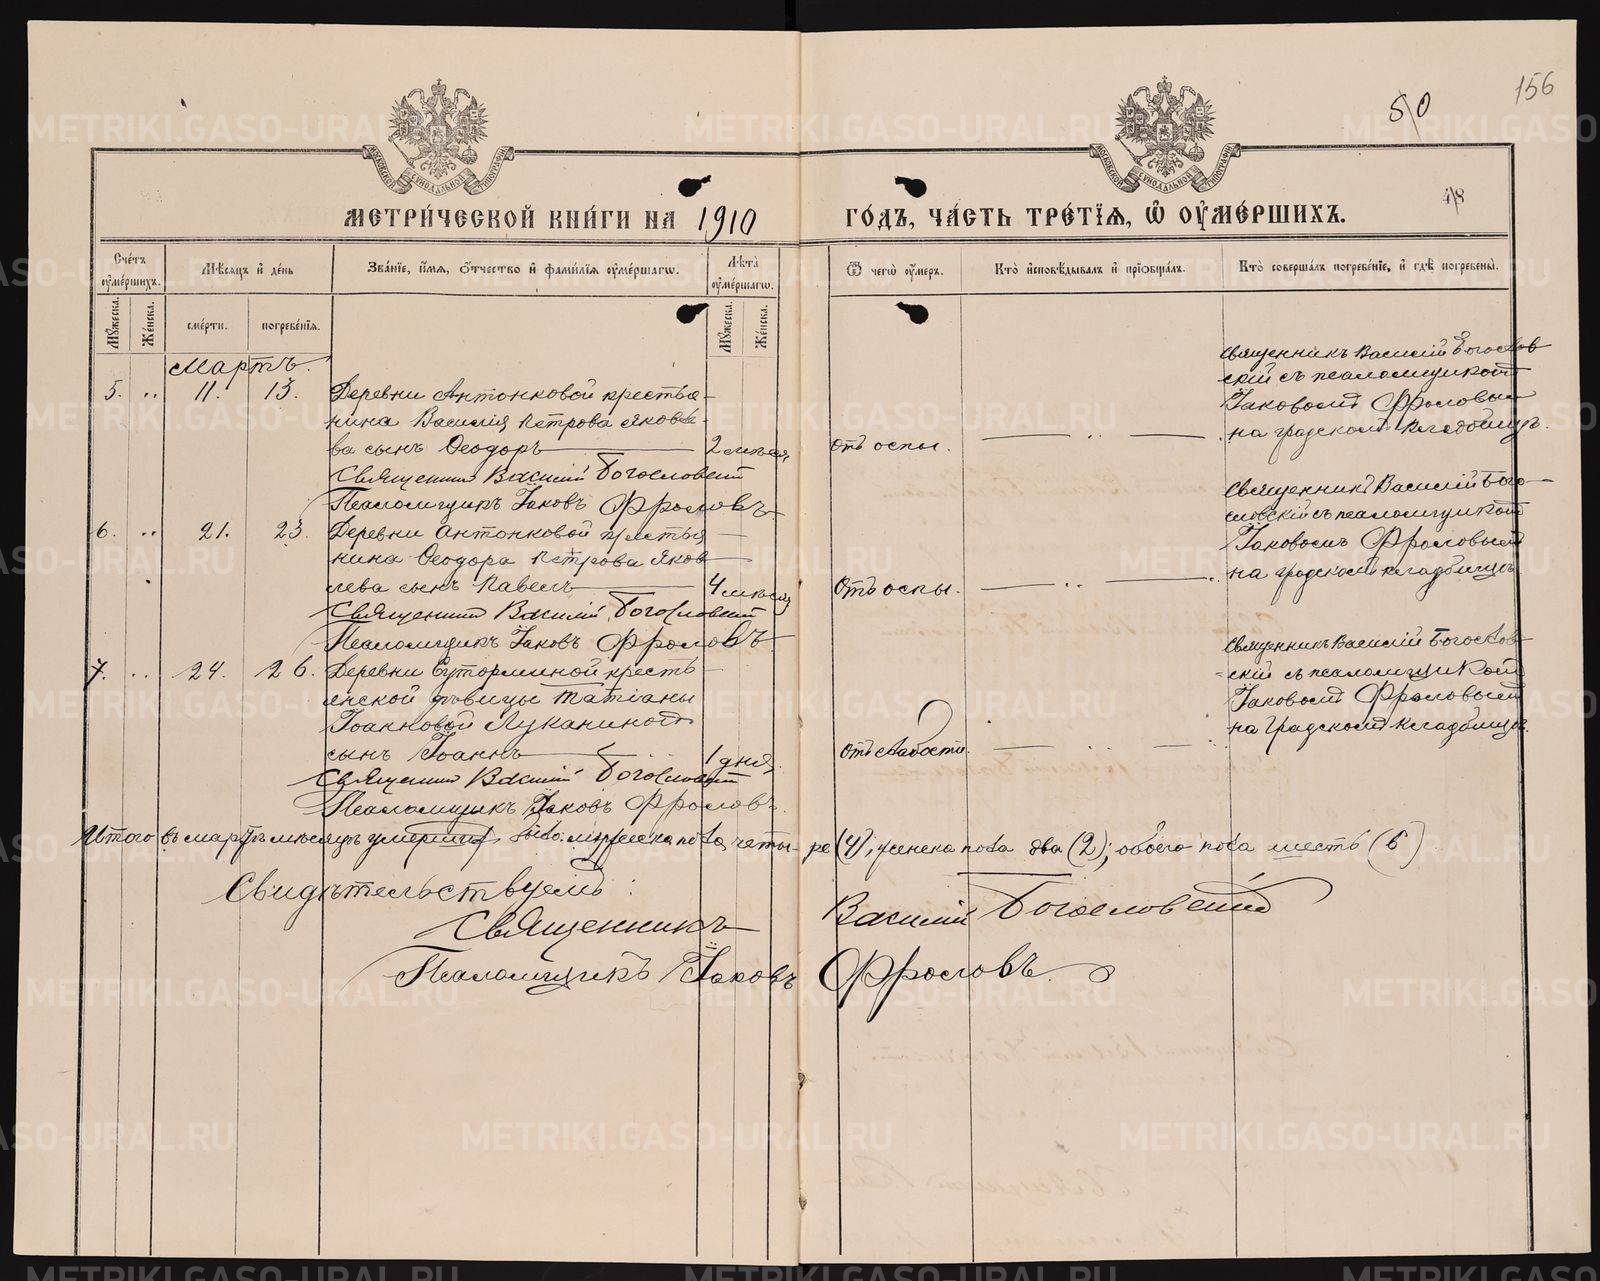 156
50
48
МЕТРИ́ЧЕСКОЙ КНИ́ГИ НА 1910 ГО́ДЪ, ЧА́СТЬ ТРЕ́ТІЯ, Ѿ ОУ҆МЕ́РШИХЪ.
Сче́тъ оу҆ме́ршихъ.
Мѣ́сяцъ и҆ де́нь
Зва́ніе, и҆́мя, ѻ҆́тчество и҆ фами́лія оу҆ме́ршагѡ.
Лѣ́та оу҆ме́ршагѡ.
Ѿ чегѡ̀ оу҆́меръ.
Кто̀ и҆сповѣ́дывалъ и҆ пріѡбща́лъ.
Кто̀ соверша́лъ погребе́ніе, и҆ гдѣ̀ погребены̀.
Мꙋ́жеска.
Же́нска.
сме́рти.
погребе́нія.
Мꙋ́жеска.
Же́нска.
Мартъ.
5. „ 11. 13. Деревни Антонковой крестья-
нина Василія Петрова Яковле-
ва сынъ Ѳеодоръ 2 мѣсяц. отъ оспы.
Священникъ Василій Богословскій
Псаломщикъ Іаковъ Фроловъ
Священникъ Василій Богослов-
скій съ псаломщикомъ
Іаковомъ Фроловым
на градскомъ кладбищѣ.
6. „ 21. 23. Деревни Антонковой крестья-
нина Ѳеодора Петрова Яков-
лева сынъ Павелъ 4 мѣсяц Отъ оспы.
Священникъ Василій Богословскій
Псаломщикъ Іаковъ Фроловъ
Священникъ Василій Бого-
словскій съ псаломщикомъ
Іаковомъ Фроловымъ
на градскомъ кладбищѣ
7. „ 24. 26. Деревни Буторминой кресть-
янской дѣвицы Татіаны
Іоанновой Луканиной
сынъ Іоаннъ 1 дня. отъ слабости.
Священникъ Василій Богословскій
Псаломщикъ Іаковъ Фроловъ.
Священникъ Василій Богослов-
скій съ псаломщикомъ
Іаковомъ Фроловымъ
на градскомъ кладбищѣ.
Итого въ мартѣ мѣсяцѣ умершихъ было: мужеска пола четы-ре (4), женска пола два (2); обоего пола шесть (6)
Свидѣтельствуемъ:
Священникъ Василій Богословскій
Псаломщикъ Іаковъ Фроловъ
METRIKI.GASO-URAL.RU